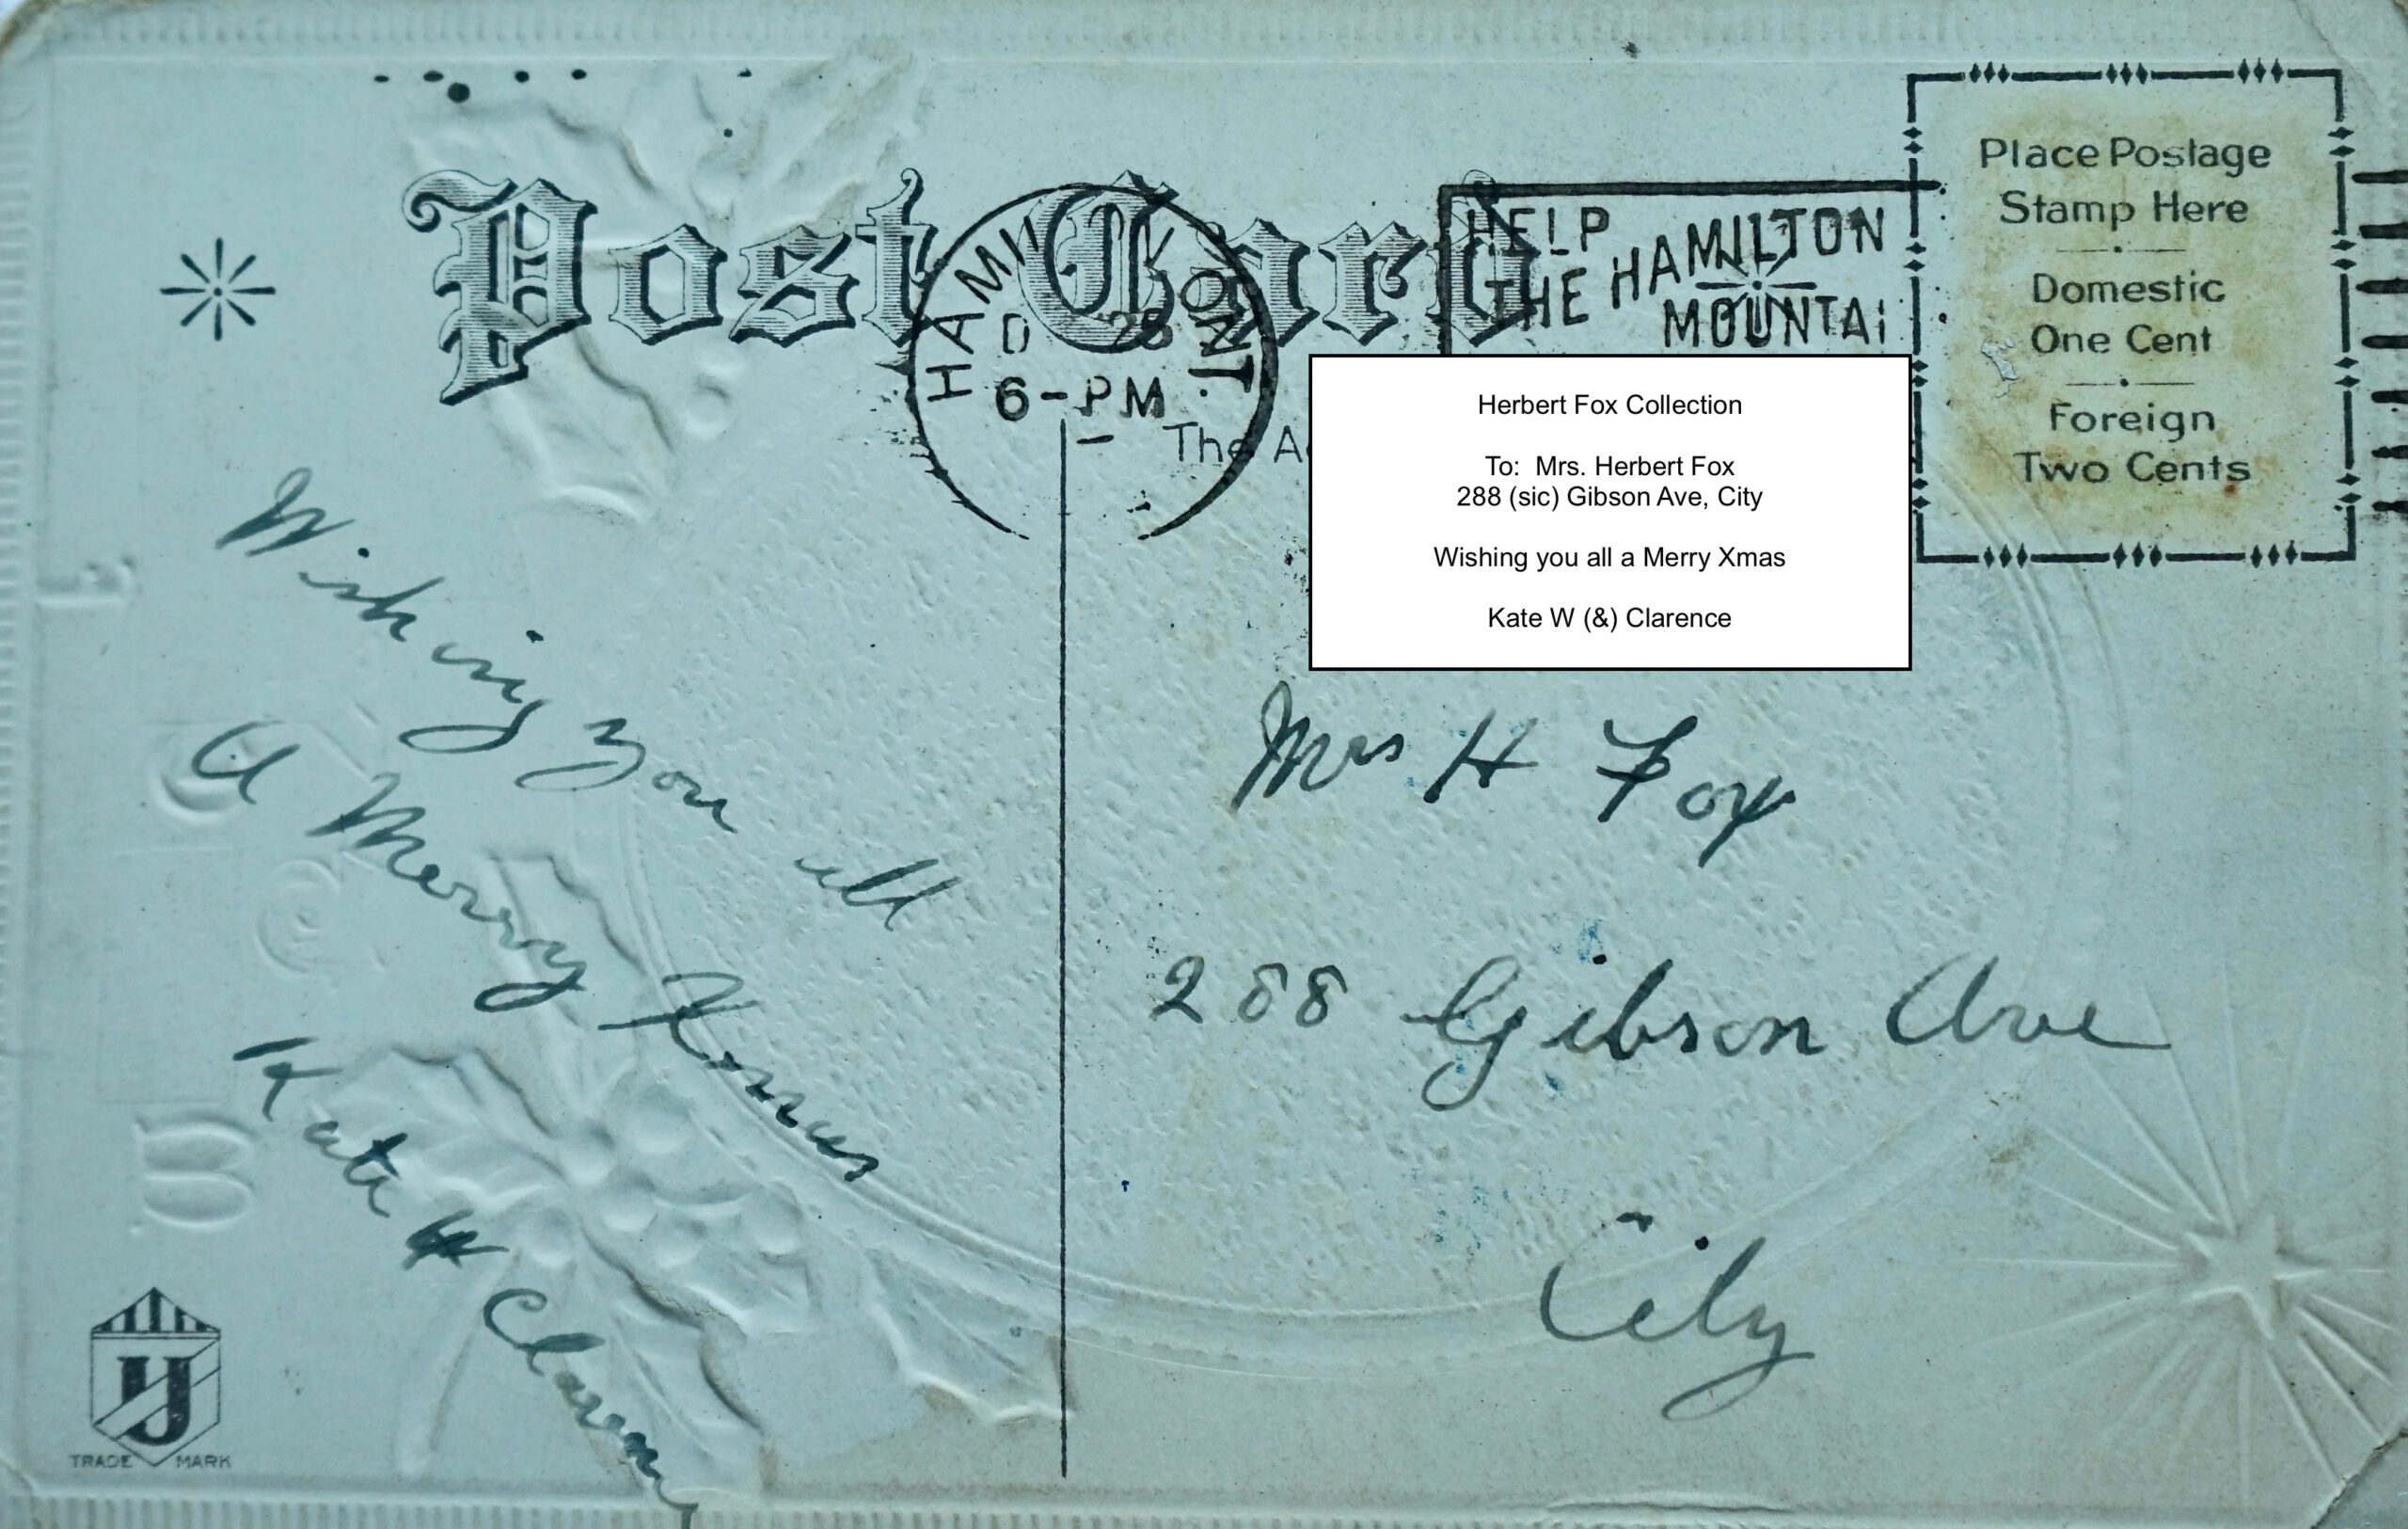 Post Card
HAMILTON ONT.
D 23
6-PM
HELP
THE HAMILTON
MOUNTAI
Place Postage
Stamp Here
Domestic
One Cent
Foreign
Two Cents
The A
Herbert Fox Collection
To: Mrs. Herbert Fox
288 (sic) Gibson Ave, City
Wishing you all a Merry Xmas
Kate W (&) Clarence
Wishing you all
A Merry Xmas
Kate
Mrs H Fox
288 Gibson Ave
City
TRADE MARK